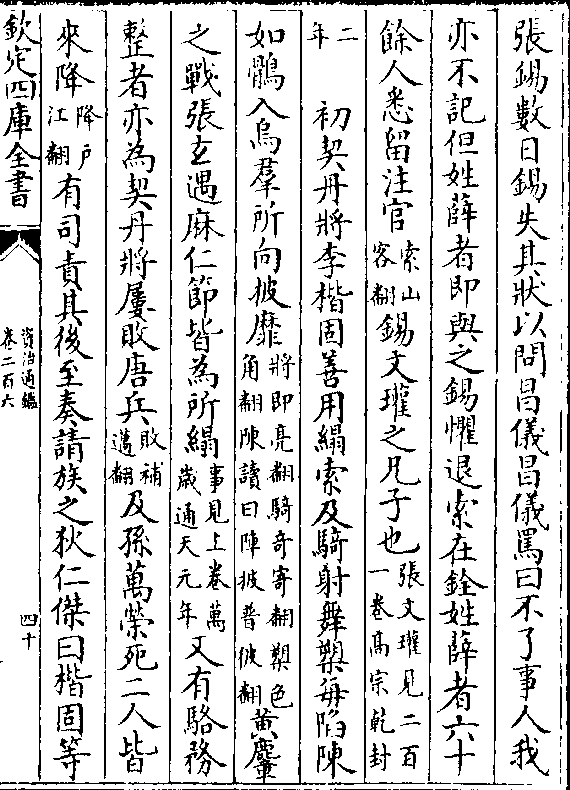 張錫數日錫失其狀以問昌儀昌儀罵曰不了事人我
亦不記但姓薛者即與之錫懼退索在銓姓薛者六十
餘人悉留注官索山客翻錫文瓘之兄子也張文瓘見二百一卷高宗乾封
二年　初契丹將李楷固善用䌈索及騎射舞槊每陷陳
如鶻入烏羣所向披靡將即亮翻騎奇寄翻槊色角翻陳讀曰陣披普彼翻黄麞
之戰張玄遇麻仁節皆為所䌈事見上卷萬歲通天元年又有駱務
整者亦為契丹將屢敗唐兵敗補邁翻及孫萬榮死二人皆
來降降户江翻有司責其後至奏請族之狄仁傑曰楷固等
欽定四庫全書
資治通鑑
卷二百六
四十